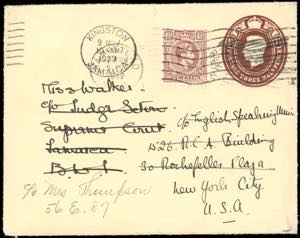 KINGSTON
1939
JAMAICA
JAMAICA
THREE HALFPENCE
Miss Walker
c/o Judge Seton
Supreme Court
Jamaica
B.W.I
c/o English Speaking Union
R.C.A Building
30 Rockefeller Plaza
New York City
U.S.A
c/o Mrs Thompson
56 E. 87